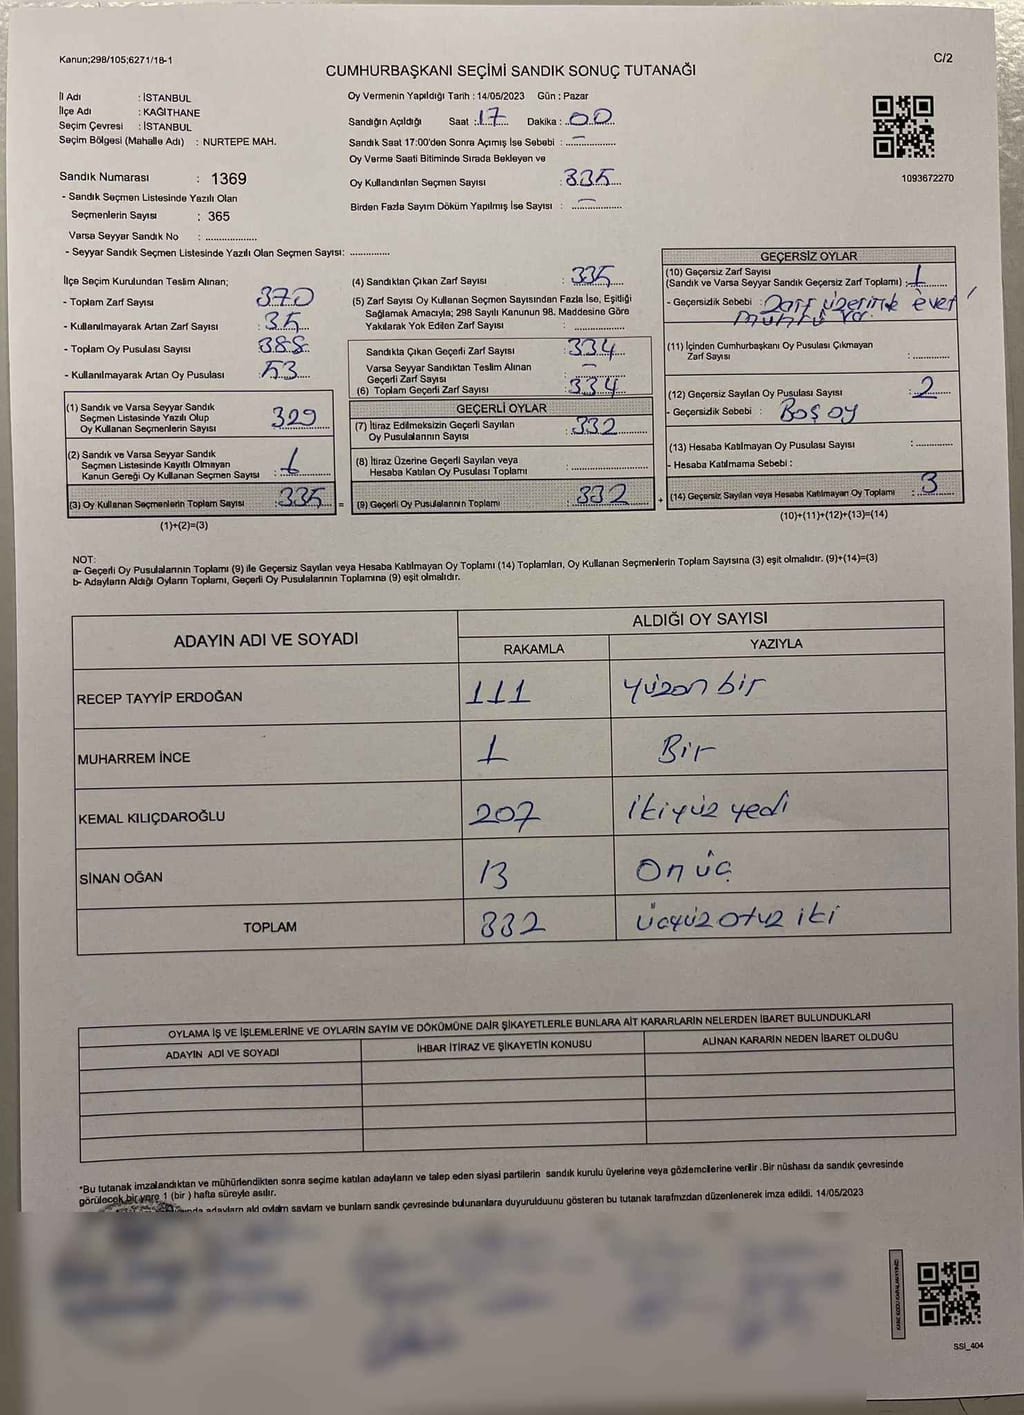 Kanun;298/105;6271/18-1
C/2
CUMHURBAŞKANI SEÇİMİ SANDIK SONUÇ TUTANAĞI
İl Adı : İSTANBUL
İlçe Adı : KAĞITHANE
Seçim Çevresi : İSTANBUL
Seçim Bölgesi (Mahalle Adı) : NURTEPE MAH.
Sandık Numarası : 1369
- Sandık Seçmen Listesinde Yazılı Olan
Seçmenlerin Sayısı : 365
Varsa Seyyar Sandık No : ..................
- Seyyar Sandık Seçmen Listesinde Yazılı Olan Seçmen Sayısı: ..............
Oy Vermenin Yapıldığı Tarih : 14/05/2023 Gün : Pazar
Sandığın Açıldığı Saat : 17 Dakika : 00
Sandık Saat 17:00'den Sonra Açımış İse Sebebi : –
Oy Verme Saati Bitiminde Sırada Bekleyen ve
Oy Kullandırılan Seçmen Sayısı : 335
Birden Fazla Sayım Döküm Yapılmış İse Sayısı : –
1093672270
İlçe Seçim Kurulundan Teslim Alınan;
- Toplam Zarf Sayısı : 370
- Kullanılmayarak Artan Zarf Sayısı : 35
- Toplam Oy Pusulası Sayısı : 388
- Kullanılmayarak Artan Oy Pusulası : 53
(1) Sandık ve Varsa Seyyar Sandık
Seçmen Listesinde Yazılı Olup
Oy Kullanan Seçmenlerin Sayısı : 329
(2) Sandık ve Varsa Seyyar Sandık
Seçmen Listesinde Kayıtlı Olmayan
Kanun Gereği Oy Kullanan Seçmen Sayısı : 6
(3) Oy Kullanan Seçmenlerin Toplam Sayısı : 335 =
(1)+(2)=(3)
(4) Sandıktan Çıkan Zarf Sayısı : 335
(5) Zarf Sayısı Oy Kullanan Seçmen Sayısından Fazla İse, Eşitliği
Sağlamak Amacıyla; 298 Sayılı Kanunun 98. Maddesine Göre
Yakılarak Yok Edilen Zarf Sayısı : ..............
Sandıkta Çıkan Geçerli Zarf Sayısı : 334
Varsa Seyyar Sandıktan Teslim Alınan
Geçerli Zarf Sayısı : –
(6) Toplam Geçerli Zarf Sayısı : 334
GEÇERLİ OYLAR
(7) İtiraz Edilmeksizin Geçerli Sayılan
Oy Pusulalarının Sayısı : 332
(8) İtiraz Üzerine Geçerli Sayılan veya
Hesaba Katılan Oy Pusulası Toplamı : ..............
(9) Geçerli Oy Pusulalarının Toplamı : 332 +
GEÇERSİZ OYLAR
(10) Geçersiz Zarf Sayısı
(Sandık ve Varsa Seyyar Sandık Geçersiz Zarf Toplamı) : 1
- Geçersizlik Sebebi : Zarf üzerinde evet
mührü var.
(11) İçinden Cumhurbaşkanı Oy Pusulası Çıkmayan
Zarf Sayısı : ..............
(12) Geçersiz Sayılan Oy Pusulası Sayısı : 2
- Geçersizlik Sebebi : Boş oy
(13) Hesaba Katılmayan Oy Pusulası Sayısı : ..............
- Hesaba Katılmama Sebebi :
(14) Geçersiz Sayılan veya Hesaba Katılmayan Oy Toplamı : 3
(10)+(11)+(12)+(13)=(14)
NOT:
a- Geçerli Oy Pusulalarının Toplamı (9) ile Geçersiz Sayılan veya Hesaba Katılmayan Oy Toplamı (14) Toplamları, Oy Kullanan Seçmenlerin Toplam Sayısına (3) eşit olmalıdır. (9)+(14)=(3)
b- Adayların Aldığı Oyların Toplamı, Geçerli Oy Pusulalarının Toplamına (9) eşit olmalıdır.
ADAYIN ADI VE SOYADI
ALDIĞI OY SAYISI
RAKAMLA YAZIYLA
RECEP TAYYİP ERDOĞAN 111 yüzon bir
MUHARREM İNCE 1 Bir
KEMAL KILIÇDAROĞLU 207 ikiyüz yedi
SİNAN OĞAN 13 On üç
TOPLAM 332 üçyüz otuz iki
OYLAMA İŞ VE İŞLEMLERİNE VE OYLARIN SAYIM VE DÖKÜMÜNE DAİR ŞİKAYETLERLE BUNLARA AİT KARARLARIN NELERDEN İBARET BULUNDUKLARI
ADAYIN ADI VE SOYADI İHBAR İTİRAZ VE ŞİKAYETİN KONUSU ALINAN KARARIN NEDEN İBARET OLDUĞU
*Bu tutanak imzalandıktan ve mühürlendikten sonra seçime katılan adayların ve talep eden siyasi partilerin sandık kurulu üyelerine veya gözlemcilerine verilir .Bir nüshası da sandık çevresinde
görülecek bir yere 1 (bir ) hafta süreyle asılır.
ve bunların sandk çevresinde bulunanlara duyurulduunu gösteren bu tutanak tarafmzdan düzenlenerek imza edildi. 14/05/2023
SSI_404